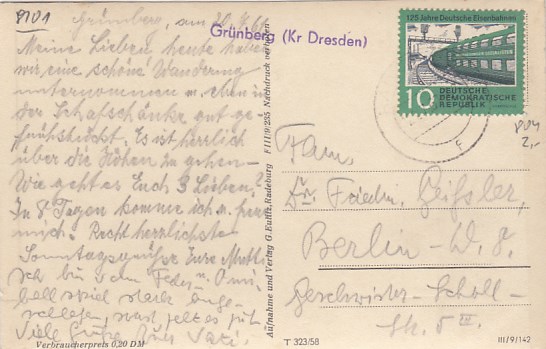 P101
Grünberg, am
Grünberg (Kr Dresden)
Meine Lieben heute haben
wir eine schöne Wanderung
unternommen u. eben in
der Schafschänke gut ge-
frühstückt. Es ist herrlich
über die Höhen zu gehen –
Wie geht es Euch 3 Lieben?
In 8 Tagen komme ich
Recht herzlichste
Sonntagsgrüße Eure Mutti
ich bin vom Feder
ball spiel stark ange-
Viele Grüße Euer Vati.
Verbraucherpreis 0,20 DM
Aufnahme und Verlag G. Radeburg F III/9/235 Nachdruck verboten
125 Jahre Deutsche Eisenbahnen
10
DEUTSCHE
DEMOKRATISCHE
REPUBLIK
2,-
Fam.
Dr. Friedr. Geißler,
Berlin – W. 8.
Geschwister-Scholl-
Str. 5 III.
T 323/58
III/9/142